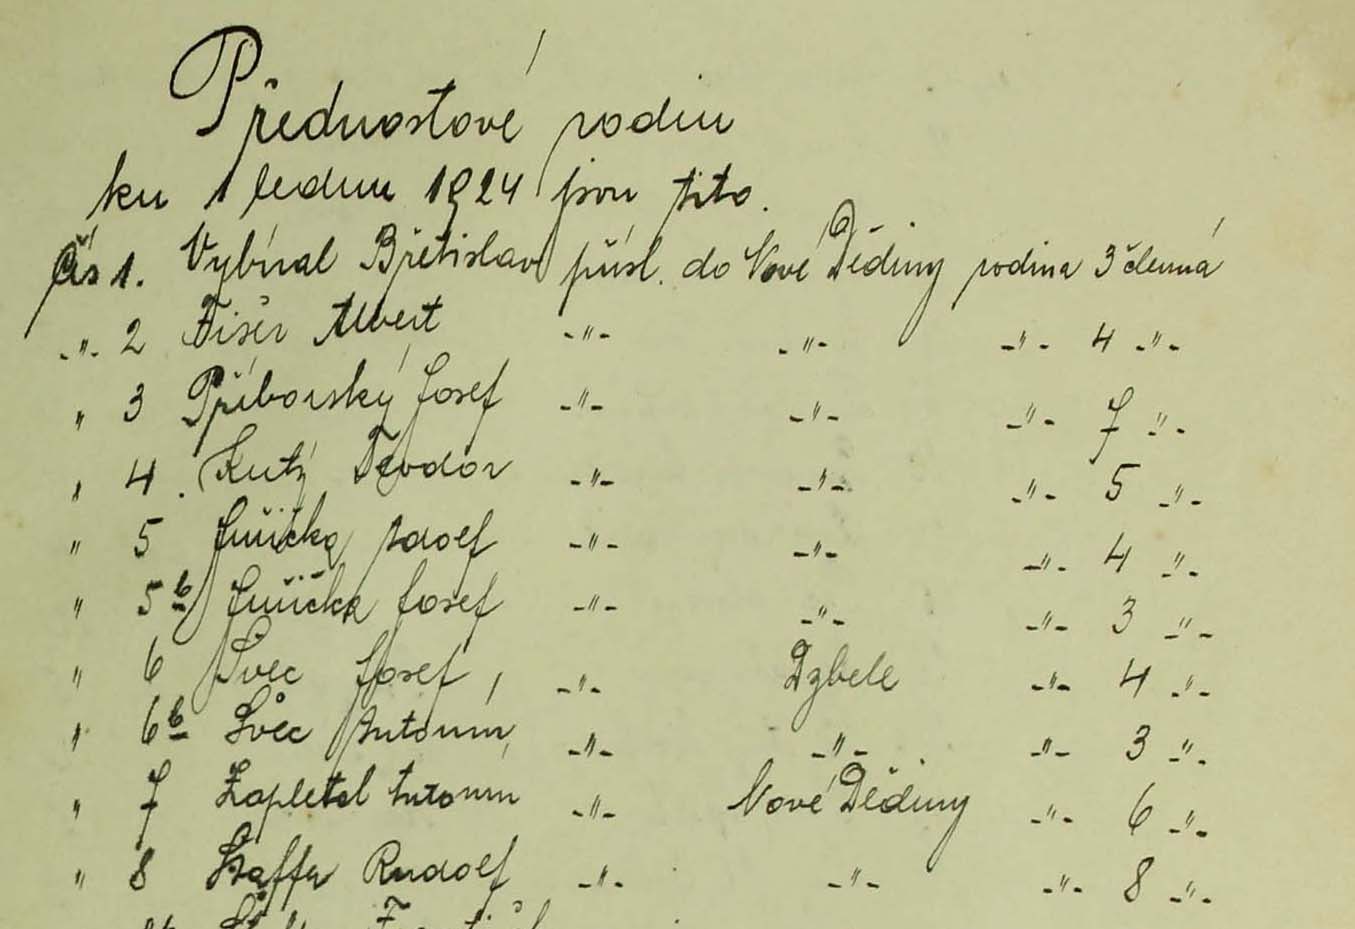 Přednostové rodin
ku 1 lednu 1924 jsou tito.
Čís 1. Vybíral Břetislav přísl. do Nové Dědiny rodina 3 členná
-"- 2 Fišer Albert -"- -"- -"- 4 -"-
" 3 Příborský Josef -"- -"- -"- 7 -"-
" 4. Krutý Teodor -"- -"- -"- 5 -"-
" 5 Juřička Adolf -"- -"- -"- 4 -"-
" 5b Juřička Josef -"- -"- -"- 3 -"-
" 6 Švec Josef, -"- Dzbele -"- 4 -"-
" 6b Švec Antonín, -"- -"- -"- 3 -"-
" 7 Zapletal Antonín -"- Nové Dědiny -"- 6 -"-
" 8 Štaffa Rudolf -"- -"- -"- 8 -"-